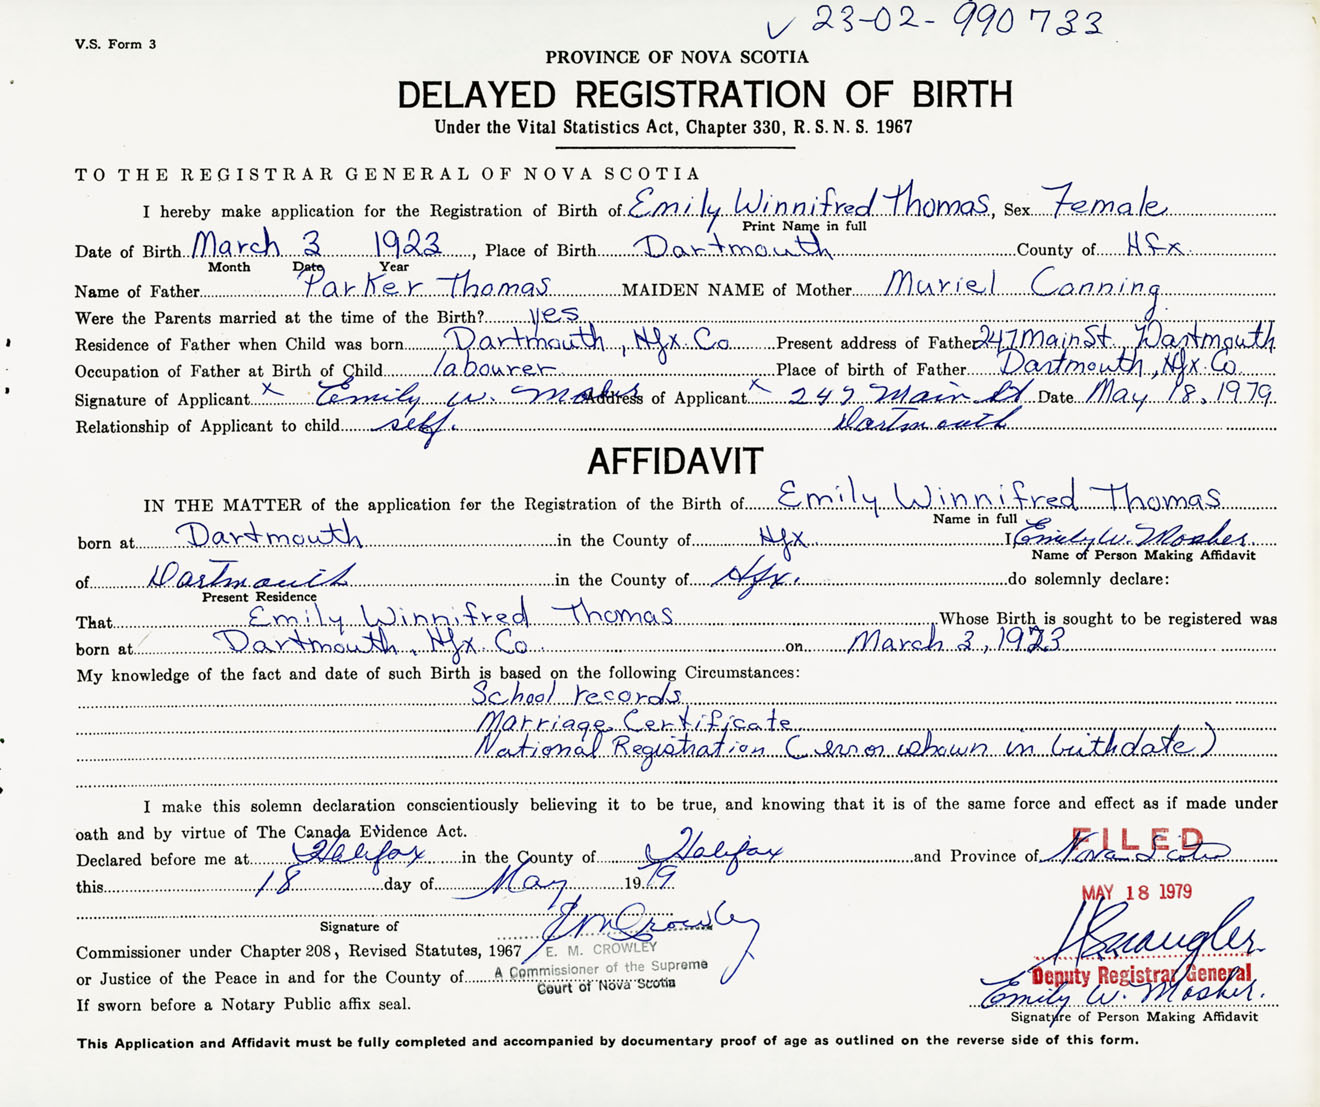 ✓ 23-02-990733
V.S. Form 3
PROVINCE OF NOVA SCOTIA
DELAYED REGISTRATION OF BIRTH
Under the Vital Statistics Act, Chapter 330, R. S. N. S. 1967
TO THE REGISTRAR GENERAL OF NOVA SCOTIA
I hereby make application for the Registration of Birth of Emily Winnifred Thomas, Sex Female
Print Name in full
Date of Birth March 3 1923, Place of Birth Dartmouth County of Hfx.
Month Date Year
Name of Father Parker Thomas MAIDEN NAME of Mother Muriel Conning
Were the Parents married at the time of the Birth? yes
Residence of Father when Child was born Dartmouth, Hfx Co Present address of Father 247 Main St. Dartmouth
Occupation of Father at Birth of Child labourer Place of birth of Father Dartmouth, Hfx. Co.
Signature of Applicant x Emily W. Mosher Address of Applicant x 247 Main St Date May 18, 1979
Relationship of Applicant to child self. Dartmouth
AFFIDAVIT
IN THE MATTER of the application for the Registration of the Birth of Emily Winnifred Thomas
Name in full
born at Dartmouth in the County of Hfx I Emily W. Mosher
Name of Person Making Affidavit
of Dartmouth in the County of Hfx. do solemnly declare:
Present Residence
That Emily Winnifred Thomas Whose Birth is sought to be registered was
born at Dartmouth, Hfx. Co. on March 3, 1923
My knowledge of the fact and date of such Birth is based on the following Circumstances:
School records
Marriage Certificate
National Registration (error shown in birthdate)
I make this solemn declaration conscientiously believing it to be true, and knowing that it is of the same force and effect as if made under
oath and by virtue of The Canada Evidence Act.
FILED
Declared before me at Halifax in the County of Halifax and Province of Nova Scotia
this 18 day of May 1979.
MAY 18 1979
Signature of E M Crowley
Commissioner under Chapter 208, Revised Statutes, 1967 E. M. CROWLEY
or Justice of the Peace in and for the County of A Commissioner of the Supreme
Court of Nova Scotia
Deputy Registrar General
Emily W. Mosher.
If sworn before a Notary Public affix seal.
Signature of Person Making Affidavit
This Application and Affidavit must be fully completed and accompanied by documentary proof of age as outlined on the reverse side of this form.